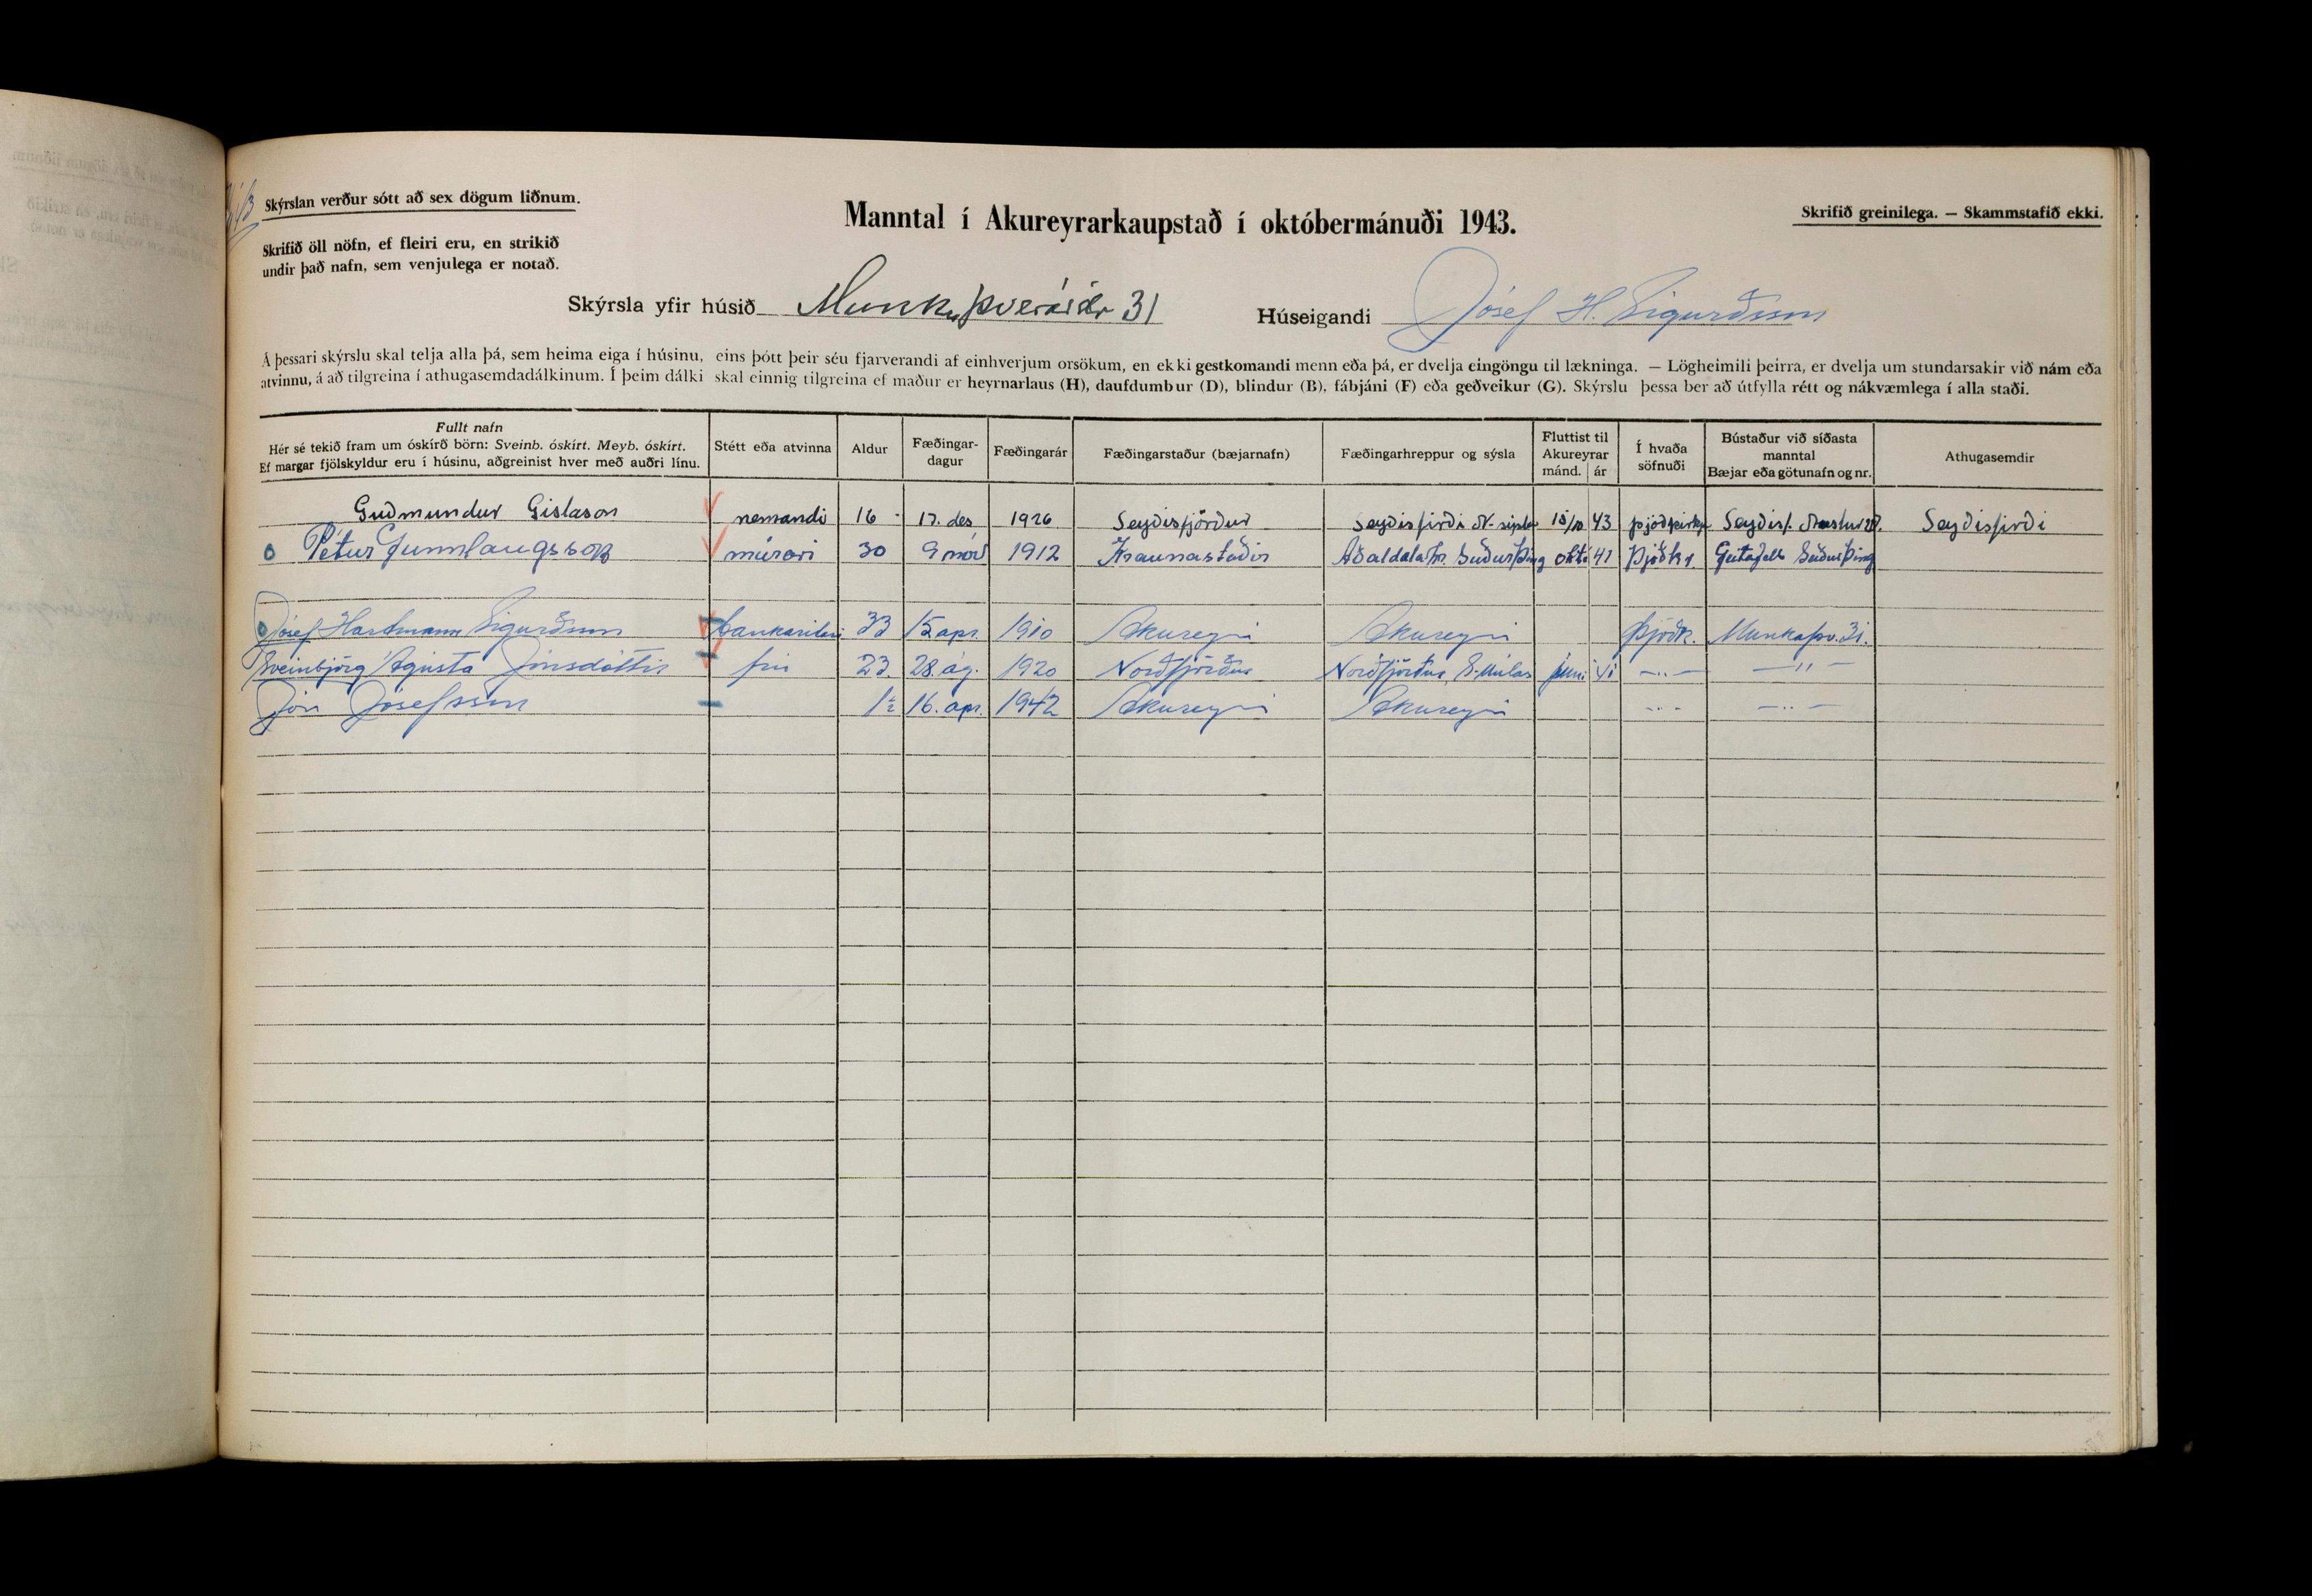 Skýrslan verður sótt að sex dögum liðnum.
Skrifið öll nöfn, ef fleiri eru, en strikið
undir það nafn, sem venjulega er notað.
Manntal í Akureyrarkaupstað í októbermánuði 1943.
Skrifið greinilega. — Skammstafið ekki.
Skýrsla yfir húsið Munkaþverárstr 31 Húseigandi Jósef H. Sigurðsson
Á þessari skýrslu skal telja alla þá, sem heima eiga í húsinu, eins þótt þeir séu fjarverandi af einhverjum orsökum, en ekki gestkomandi menn eða þá, er dvelja eingöngu til lækninga. — Lögheimili þeirra, er dvelja um stundarsakir við nám eða
atvinnu, á að tilgreina í athugasemdadálkinum. Í þeim dálki skal einnig tilgreina ef maður er heyrnarlaus (H), daufdumbur (D), blindur (B), fábjáni (F) eða geðveikur (G). Skýrslu þessa ber að útfylla rétt og nákvæmlega í alla staði.
Fullt nafn
Hér sé tekið fram um óskírð börn: Sveinb. óskírt. Meyb. óskírt.
Ef margar fjölskyldur eru í húsinu, aðgreinist hver með auðri línu.
Stétt eða atvinna
Aldur
Fæðingar-
dagur
Fæðingarár
Fæðingarstaður (bæjarnafn)
Fæðingarhreppur og sýsla
Fluttist til
Akureyrar
mánd. ár
Í hvaða
söfnuði
Bústaður við síðasta
manntal
Bæjar eða götunafn og nr.
Athugasemdir
Guðmundur Gislason nemandi 16 17. des 1926 Seyðisfjörður Seyðisfirði N- 15/10 43 Seyðisf. Seyðisfirði
Pétur Gunnlaugsson múrari 30 9 nóv 1912 Hraunastaðir Aðaldalahr. SuðurÞing okt 41 Þjóðk. Geitafell SuðurÞing
Jósef Hartmann Sigurðsson bankaritari 33 15 apr. 1910 Akureyri Akureyri Þjóðk. Munkaþv. 31.
Sveinbjörg Ágústa Jónsdóttir frú 23. 28. ág. 1920 Norðfjörður Norðfjörður, S-Múlas júní 41 — „ — — „ —
Jón Jósefsson 1½ 16. apr. 1942 Akureyri Akureyri - „ - — „ —